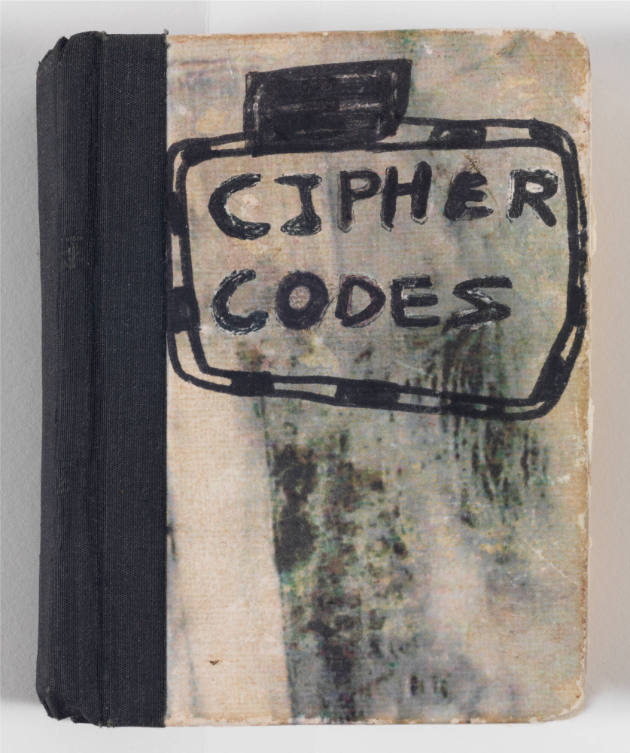 CIPHER
CODES